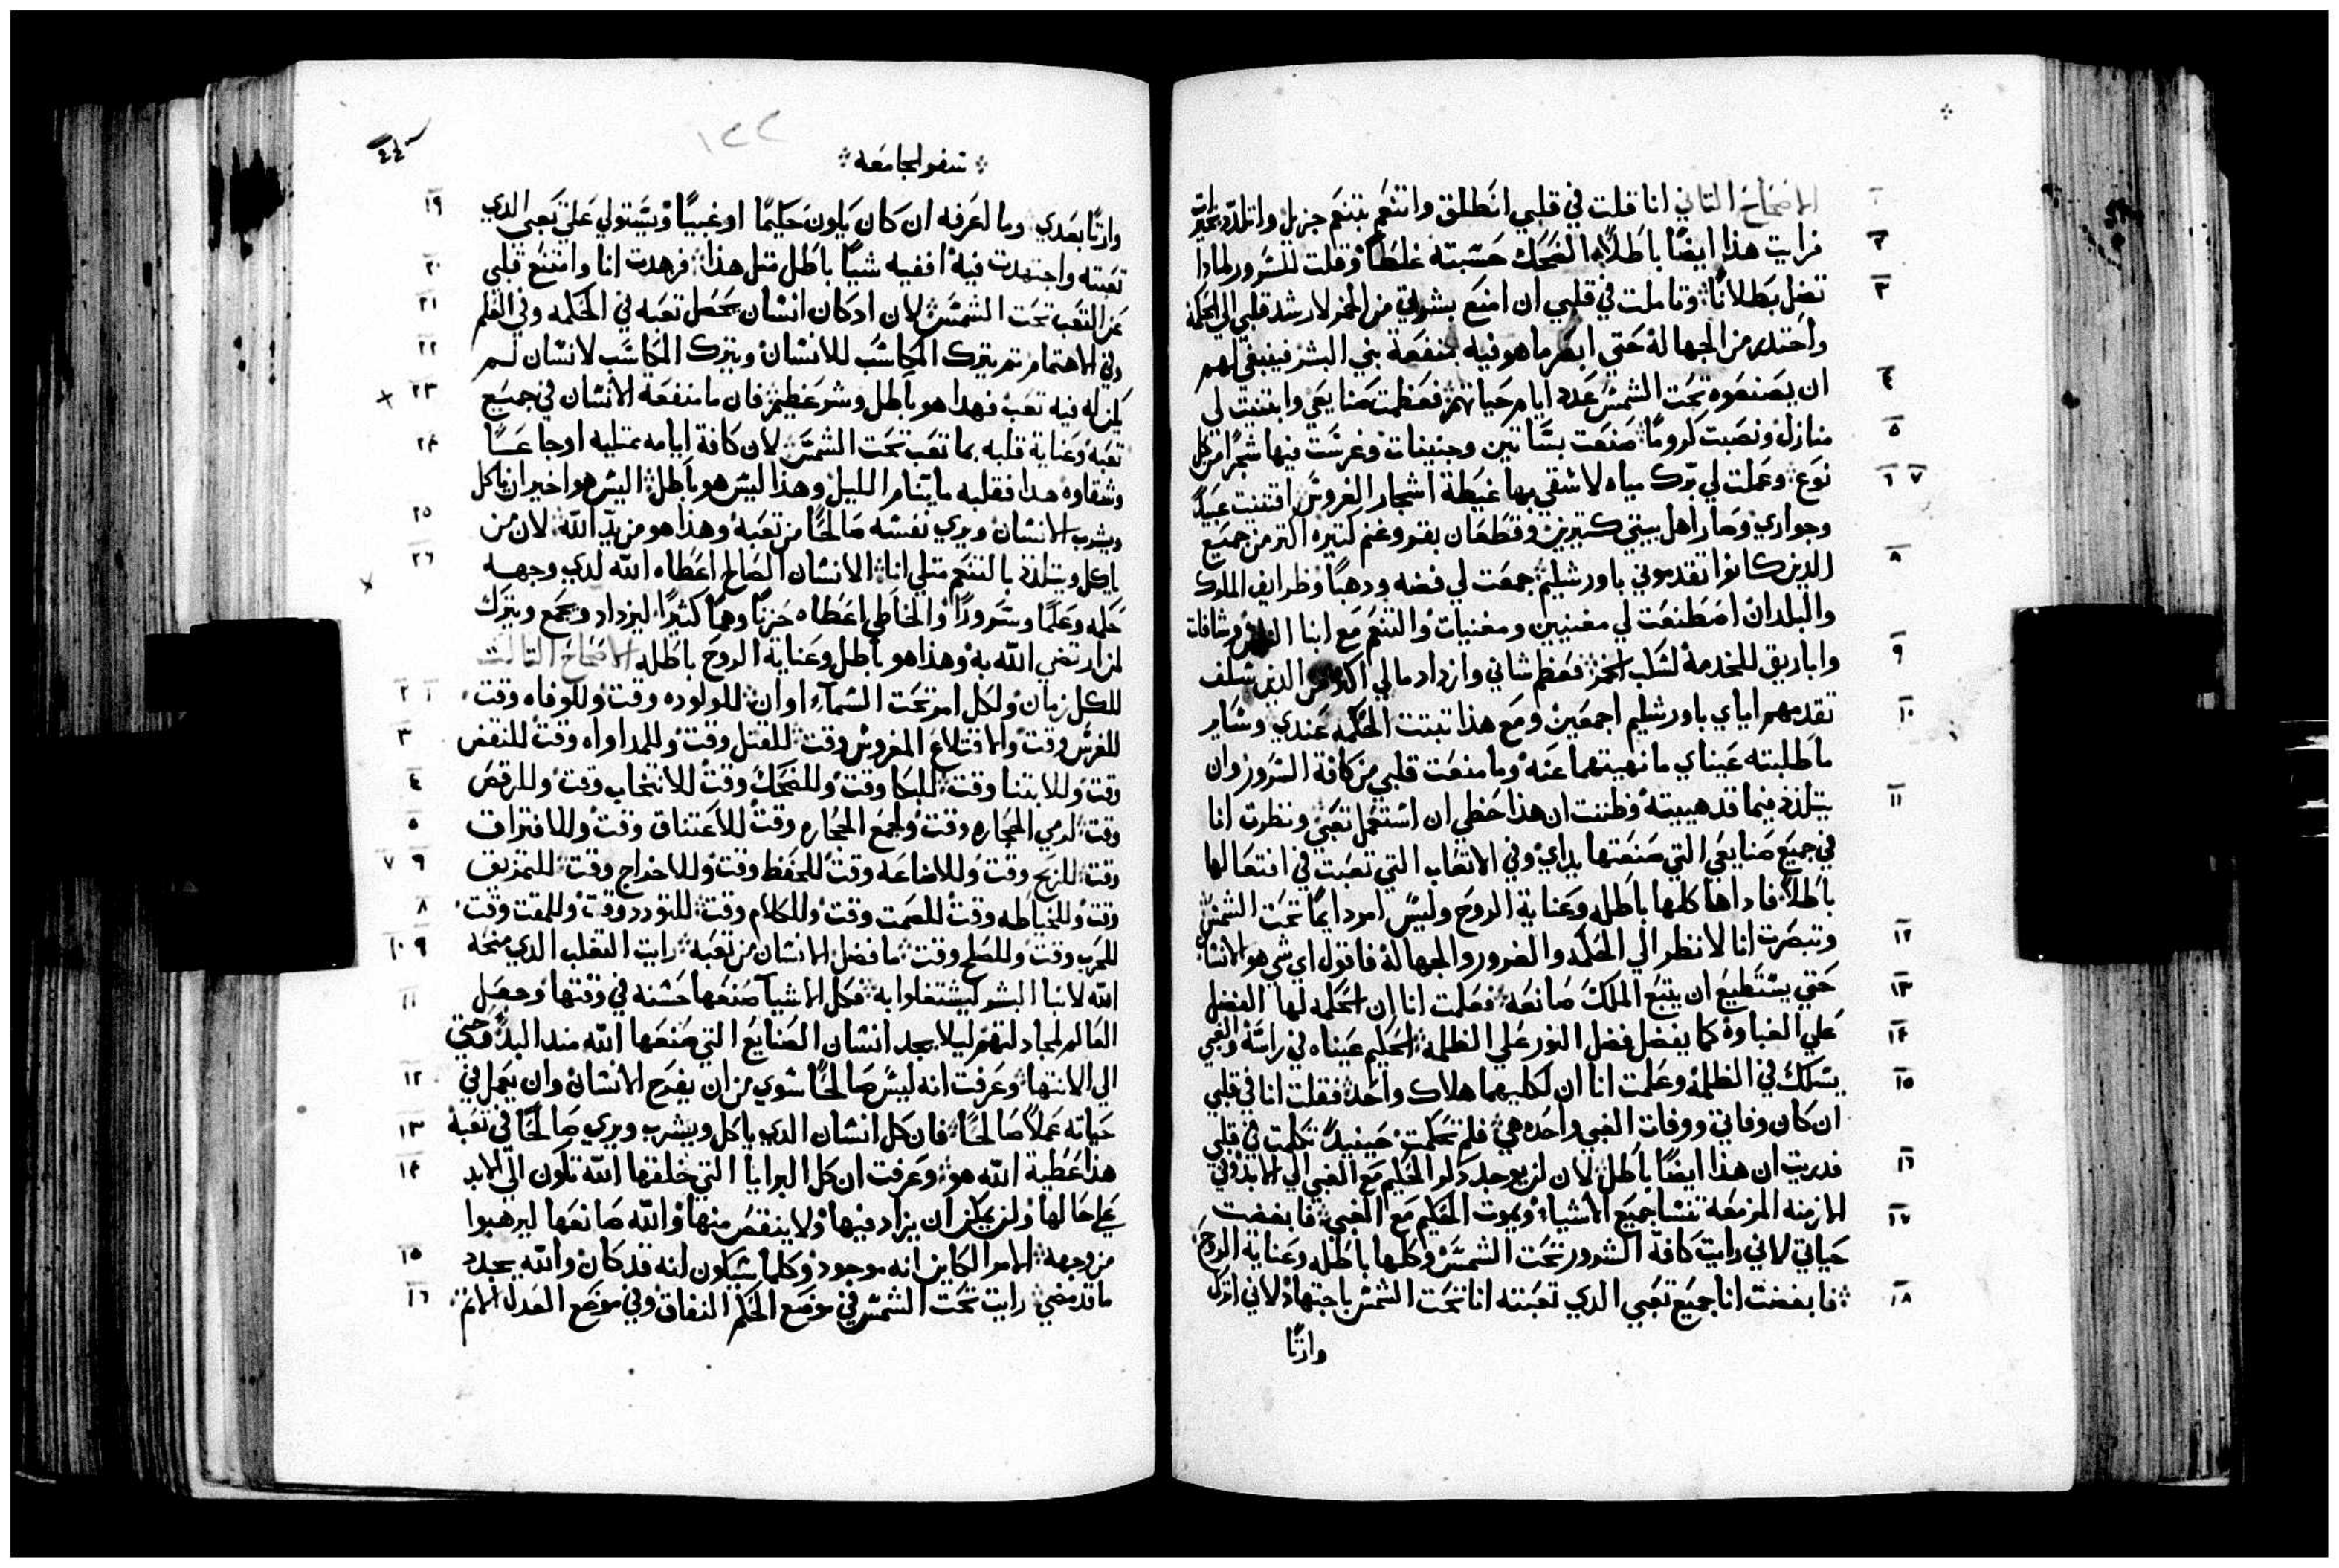 الاصحاح التاني انا قلت في قلبي انطلق واتنعم بتنعم جزيل واتلدد بخيرات
١
فرايت هذا ايضًا باطلاً الضحك حسبته غلطًا وقلت للسرور لمادا
٢
تضل بطلانًا وتاملت في قلبي ان امنع بشرتي من الخمر لارشد قلبي الي الحكمة
٣
واحتدر من الجهالة حتي ابصر ما هو فيه منفعة بني البشر فينبغي لهم
ان يصنعوه تحت الشمس عدد ايام حياتهم فعظمت صنايعي وابتنيت لي
٤
منازل ونصبت كرومًا صنعت بساتين وجنينات وغرست فيها شجرًا من كل
٥
نوع وعملت لي برك مياه لاسقي بها غيطة اشجار الغروس اقتنيت عبيدًا
٦ ٧
وجواري وصار اهل بيتي كتيرين وقطعان بقر وغنم كتيره اكتر من جميع
الدين كانوا تقدموني باورشليم جمعت لي فضه ودهبًا وظرايف الملوك
٨
والبلدان اصطنعت لي مغنيين ومغنيات والتنعم مع ابنا البشر وشافات
واباريق للخدمة لسكب الخمر فعظم شاني وازداد مالي اكتر من الدين سلف
٩
تقدمهم اياي باورشليم اجمعين ومع هذا تبتت الحكمه عندي وساير
١٠
ما طلبته عيناي ما نهيتهما عنه وما منعت قلبي من كافة السرور وان
يتلذذ فيما قد هييته وظننت ان هذا حظي ان استعمل تعبي ونظرت انا
١١
في جميع صنايعي التي صنعتها يداي وفي الاتعاب التي تعبت في افتعالها
باطلاً فاداها كلها باطله وعناية الروح وليس امر دايمًا تحت الشمس
وتبصرت انا لانظر الي الحكمه والغرور والجهالة فاقول اي شي هو الانسان
١٢
حتي يستطيع ان يتبع الملك صانعه فعلمت انا ان الحكمه لها الفضل
١٣
علي الغباوة كما يفضل فضل النور علي الظلمة الحكيم عيناه في راسه والغبي
١٤
يسلك في الظلمة وعلمت انا ان لكليهما هلاك واحد فقلت انا في قلبي
١٥
ان كان وفاتي ووفات الغبي واحده هي فلم تحكمت حينيدٍ تكلمت في قلبي
فدريت ان هذا ايضًا باطل لان لن يوجد دكر الحكيم مع الغبي الي الابد وفي
١٦
الازمنه المزمعه تنسا جميع الاشياء ويموت الحكيم مع الغبي فابغضت
١٧
حياتي لاني رايت كافة الشرور تحت الشمس وكلها باطله وعناية الروح
فابغضت انا جميع تعبي الدي تعبته انا تحت الشمس باجتهاد لاني اترك
١٨
وارتًا
سفر الجامعه
١٢٢
وارتًا بعدي وما اعرفه ان كان يكون حكيمًا او غبيًا ويستولي علي تعبي الدي
١٩
تعبته واجتهدت فيه افقيه شيًا باطل متل هذا فزهدت انا وامتنع قلبي
٢٠
عن التعب تحت الشمس لان اد كان انسان يحصل تعبه في الحكمه وفي العلم
٢١
وفي الاهتمام تم يترك المكاسب للانسان ويترك المكاسب لانسان لم
٢٢
يكن له فيه تعب فهدا هو باطل وشر عظيم فان ما منفعة الانسان في جميع
٢٣
تعبه وعناية قلبه بما تعب تحت الشمس لان كافة ايامه ممتليه اوجاعًا
٢٤
وشقاوه هدا فقلبه ما يتنام الليل وهذا ليس هو باطل اليس هو اخير ان ياكل
ويشرب الانسان ويري نفسه صالحًا من تعبه وهذا هو من يد الله لان من
٢٥
ياكل ويتلذذ بالتنعم متلي انا الانسان الصالح اعطاه الله لدي وجهه
٢٦
حكمه وعلمًا وسرورًا والخاطي اعطاه حزنًا وهمًا كثيرًا ليزداد ويجمع ويترك
لمن ارتضي الله به وهذا هو باطل وعناية الروح باطله الاصحاح التالت
للكل زمان ولكل امر تحت السماء اوان للولوده وقت وللوفاه وقت
١ ٢
للغرس وقت والاقتلاع المغروس وقت للقتل وقت وللمداواه وقت للنقض
٣
وقت وللابتنا وقت للبكا وقت وللضحك وقت للانتحاب وقت وللرقص
٤
وقت لرمي الحجاره وقت ولجمع الحجاره وقت للاعتناق وقت وللافتراق
٥
وقت للربح وقت وللاضاعه وقت للحفظ وقت وللاخراج وقت للتمزيق
٦ ٧
وقت وللخياطه وقت للصمت وقت وللكلام وقت للتودد وقت وللمقت وقت
٨
للحرب وقت وللصلح وقت ما فضل الانسان من تعبه رايت التقلب الدي منحه
٩ ١٠
الله لابنا البشر ليشتغلوا به فكل الاشيا صنعها حسنه في وقتها وجعل
١١
العالم لجادلتهم ليلا يجد انسان الصنايع التي صنعها الله مند البدو وحتي
الي الانتها وعرفت انه ليس صالحًا سوي من ان يفرح الانسان وان يعمل في
١٢
حياته عملاً صالحًا فان كل انسان الدي ياكل ويشرب ويري صالحًا في تعبه
١٣
هذا عطية الله هو وعرفت ان كل البرايا التي خلقها الله تكون الي الابد
١٤
علي حالها ولن يمكن ان يزاد فيها ولا ينقص منها والله صانعها ليرهبوا
من وجهه الامر الكاين انه موجود وكلما سيكون انه قد كان والله يجدد
١٥
ما قد مضي رايت تحت الشمس في موضع الحكم النفاق وفي موضع العدل الاتم
١٦